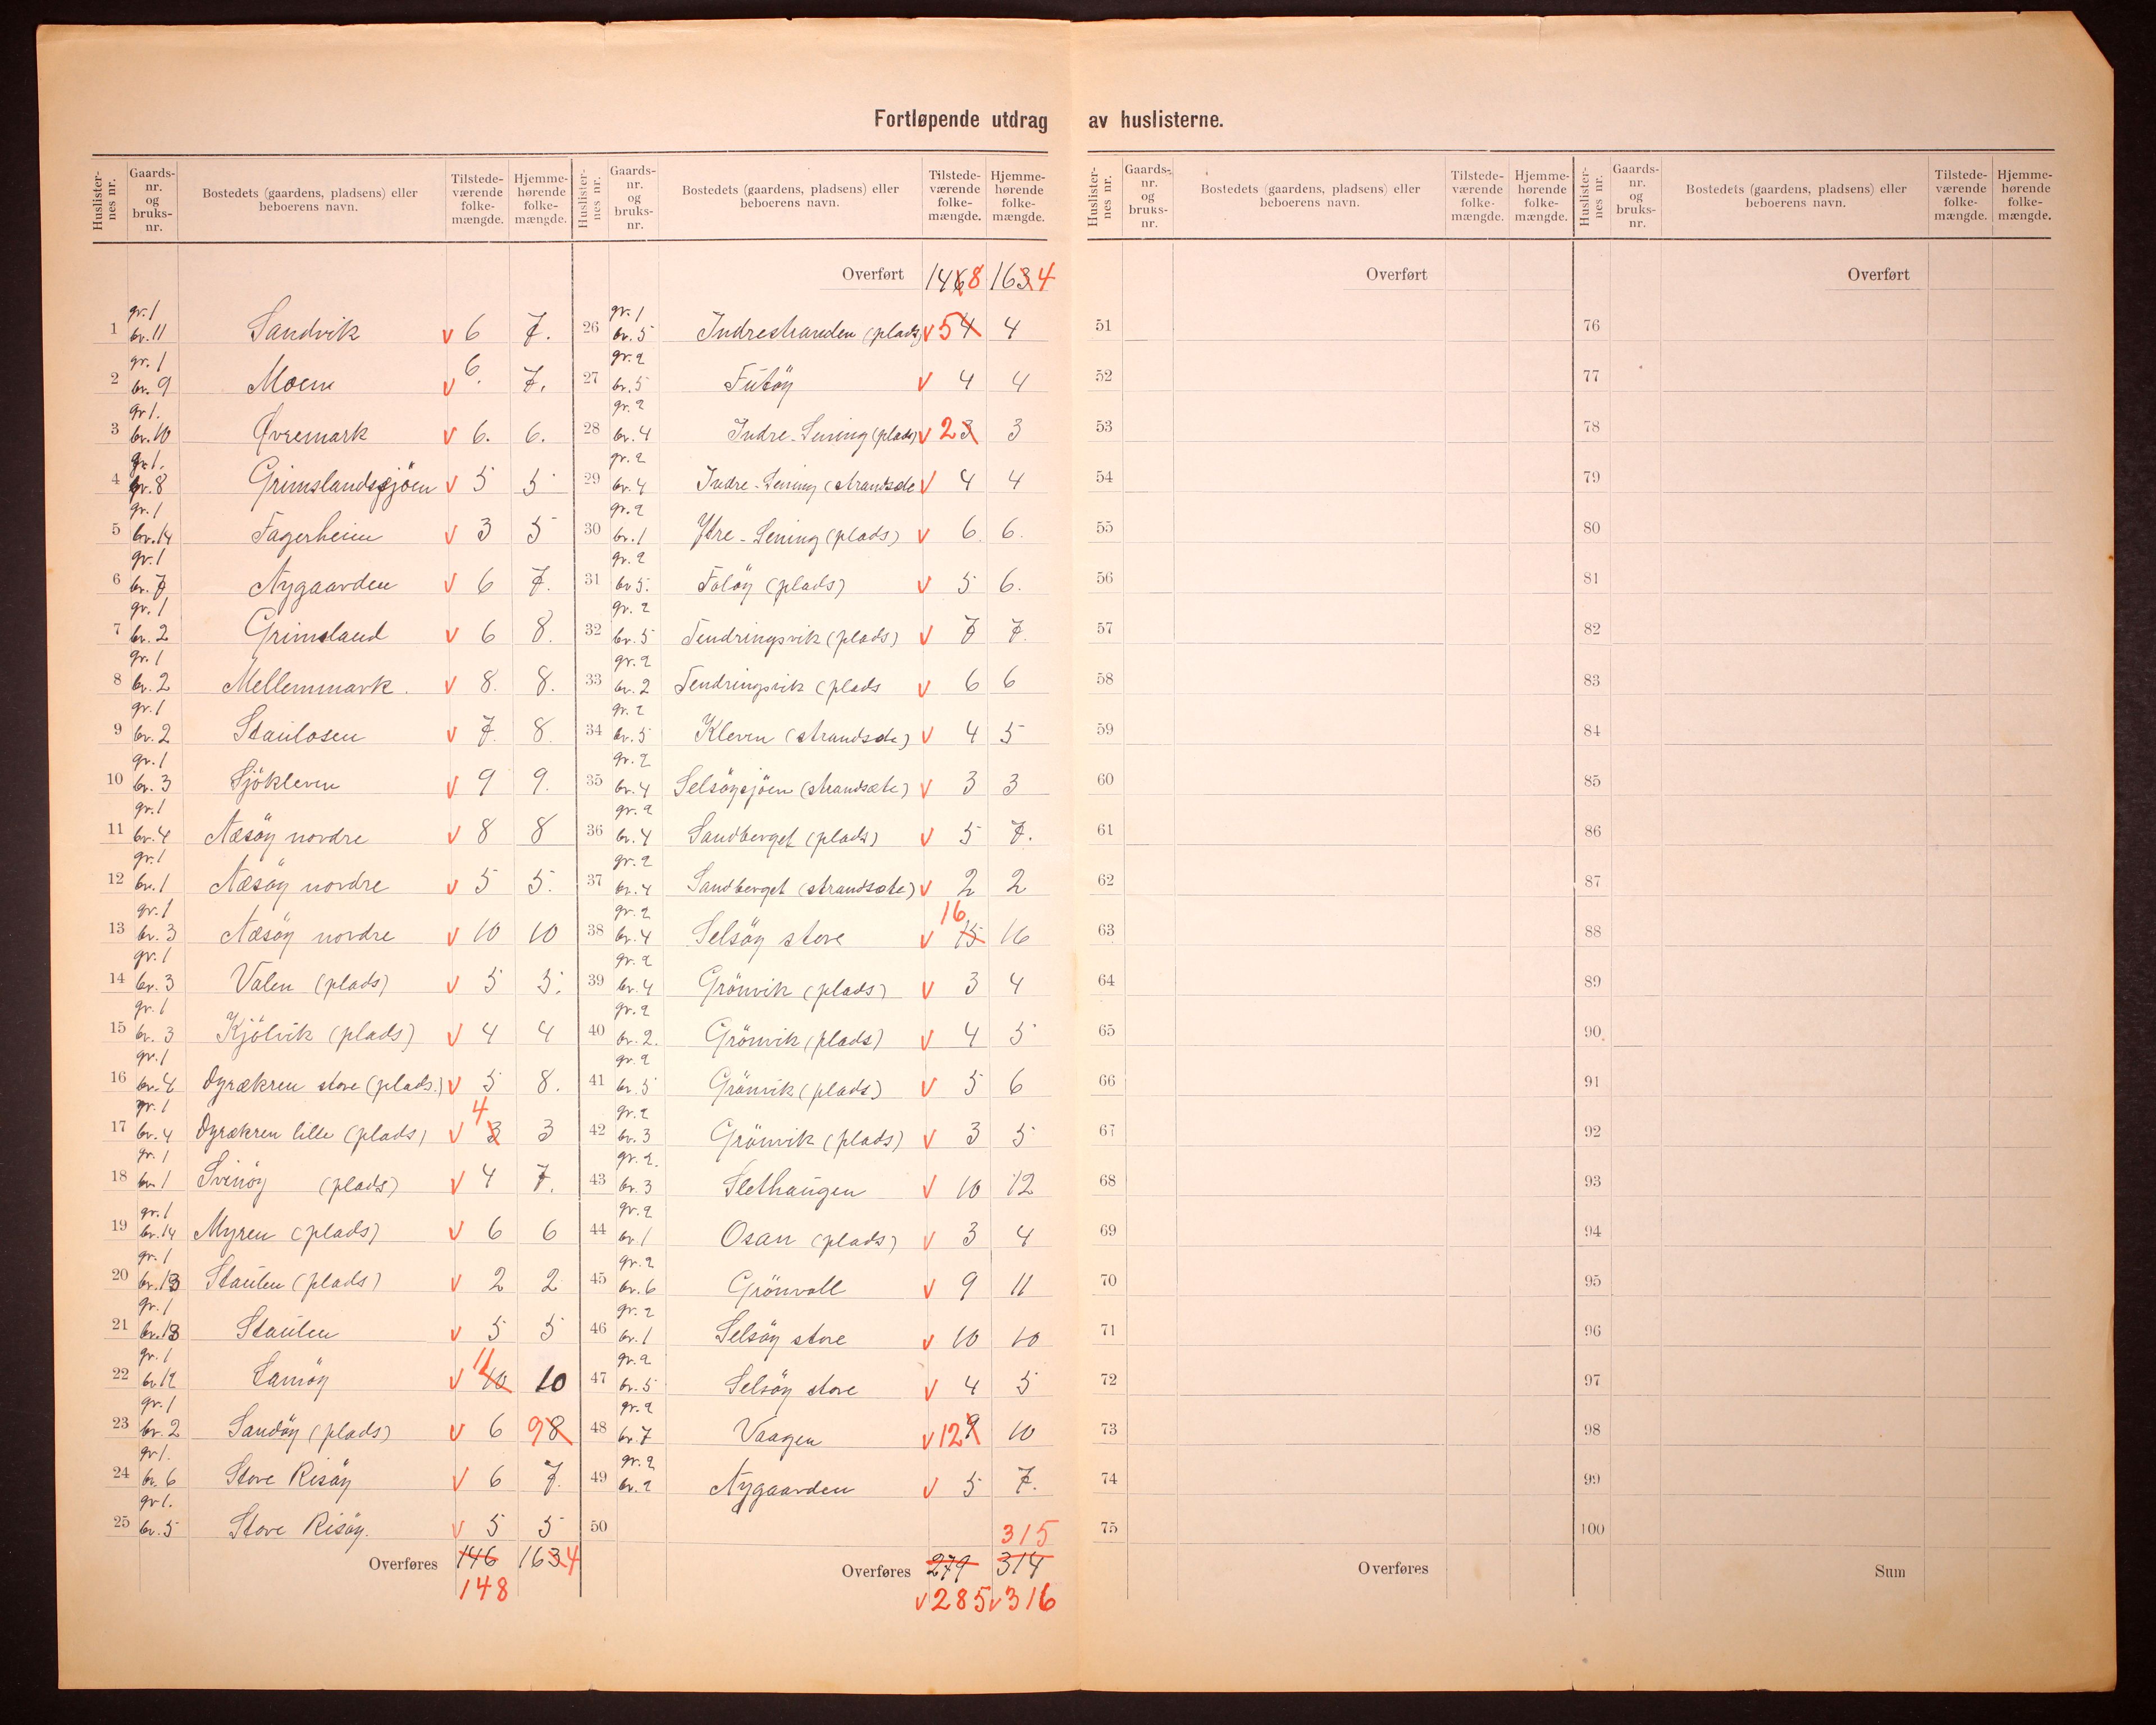 Fortløpende utdrag av huslisterne.
Huslister-nes nr. Gaards-nr. og bruks-nr. Bostedets (gaardens, pladsens) eller beboerens navn. Tilstede-værende folke-mængde. Hjemme-hørende folke-mængde.
1 gr. 1 br. 11 Sandvik v 6 7.
2 gr. 1 br. 9 Moem v 6. 7.
3 gr 1. br. 10 Øvremark v 6. 6.
4 gr. 1. br. 8 Grimslandssjöen v 5 5
5 gr. 1 br. 14 Fagerheim v 3 5
6 gr. 1 br. 7 Nygaarden v 6 7.
7 gr. 1 br. 2 Grimsland v 6 8.
8 gr. 1 br. 2 Mellemmark. v 8. 8.
9 gr. 1 br. 2 Staulosen v 7. 8.
10 gr. 1 br. 3 Sjökleven v 9 9.
11 gr. 1 br. 4 Næsöy nordre v 8 8
12 gr. 1 br. 1 Næsöy nordre v 5 5.
13 gr. 1 br. 3 Næsöy nordre v 10 10
14 gr. 1 br. 3 Valen (plads) v 5 5.
15 gr. 1 br. 3 Kjölvik (plads) v 4 4
16 gr. 1 br. 4 Dyrækren store (plads.) v 5 8.
17 gr. 1 br. 4 Dyrækren lille (plads) v 4 3 3
18 gr. 1 br. 1 Svinöy (plads) v 4 7.
19 gr. 1 br. 14 Myren (plads) v 6 6
20 gr. 1 br. 13 Staulen (plads) v 2 2
21 gr. 1 br. 13 Staulen v 5 5
22 gr. 1 br. 12 Lamöy v 11 10 10
23 gr. 1 br. 2 Sandöy (plads) v 6 9 8
24 gr 1. br. 6 Store Risöy v 6 7.
25 gr 1. br. 5 Store Risöy. v 5 5
Overføres 146 163 4
148
Huslister-nes nr. Gaards-nr. og bruks-nr. Bostedets (gaardens, pladsens) eller beboerens navn. Tilstede-værende folke-mængde. Hjemme-hørende folke-mængde.
Overført 146 8 163 4
26 gr. 1 br. 5 Indrestranden (plads) v 5 4 4
27 gr. 2 br. 5 v 4 4
28 gr. 2 br. 4 Indre-Lening (plads) v 2 3 3
29 gr. 2 br. 4 Indre-Lening (strandsæde v 4 4
30 gr. 2 br. 1 Ytre-Lening (plads) v 6. 6.
31 gr. 2 br 5. (plads) v 5 6.
32 gr. 2 br. 5 Tendringsvik (plads) v 7 7.
33 gr. 2 br. 2 Tendringsvik (plads v 6 6
34 gr. 2 br. 5 Kleven (strandsæte) v 4 5
35 gr. 2 br. 4 Selsöysjöen (strandsæte) v 3 3
36 gr. 2 br. 4 Sandberget (plads) v 5 7.
37 gr. 2 br. 4 Sandberget (strandsæte) v 2 2
38 gr. 2 br. 4 Selsöy store v 16 15 16
39 gr. 2 br. 4 Grönvik (plads) v 3 4
40 gr. 2 br. 2. Grönvik (plads) v 4 5
41 gr. 2 br. 5 Grönvik (plads) v 5 6
42 gr. 2 br. 3 Grönvik (plads) v 3 5
43 gr. 2. br. 3 Slethaugen v 10 12
44 gr. 2 br. 1 Osan (plads) v 3 4
45 gr. 2 br. 6 Grönvoll v 9 11
46 gr. 2 br. 1 Selsöy store v 10 10
47 gr. 2 br. 5 Selsöy store v 4 5
48 gr. 2 br. 7 Vaagen v 12 9 10
49 gr. 2 br. 2 Nygaarden v 5 7.
50 315
Overføres 279 314
v 285 v 316
Huslister-nes nr. Gaards-nr. og bruks-nr. Bostedets (gaardens, pladsens) eller beboerens navn. Tilstede-værende folke-mængde. Hjemme-hørende folke-mængde.
Overført
51
52
53
54
55
56
57
58
59
60
61
62
63
64
65
66
67
68
69
70
71
72
73
74
75
Overføres
Huslister-nes nr. Gaards-nr. og bruks-nr. Bostedets (gaardens, pladsens) eller beboerens navn. Tilstede-værende folke-mængde. Hjemme-hørende folke-mængde.
Overført
76
77
78
79
80
81
82
83
84
85
86
87
88
89
90
91
92
93
94
95
96
97
98
99
100
Sum